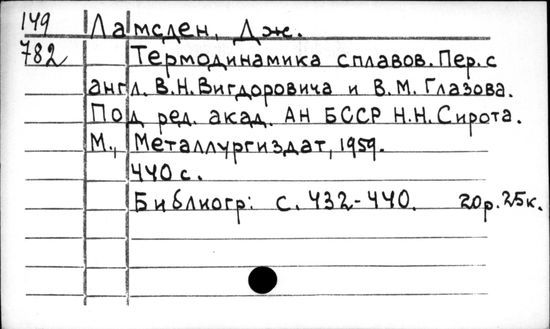 149 Ламсден, Дж.
782 Термодинамика сплавов. Пер. с
англ. В.Н. Вигдоровича и В.М. Глазова.
Под ред. акад. АН БССР Н.Н. Сирота.
М., Металлургиздат, 1959.
440 с.
Библиогр: с. 432-440. 20р. 25к.